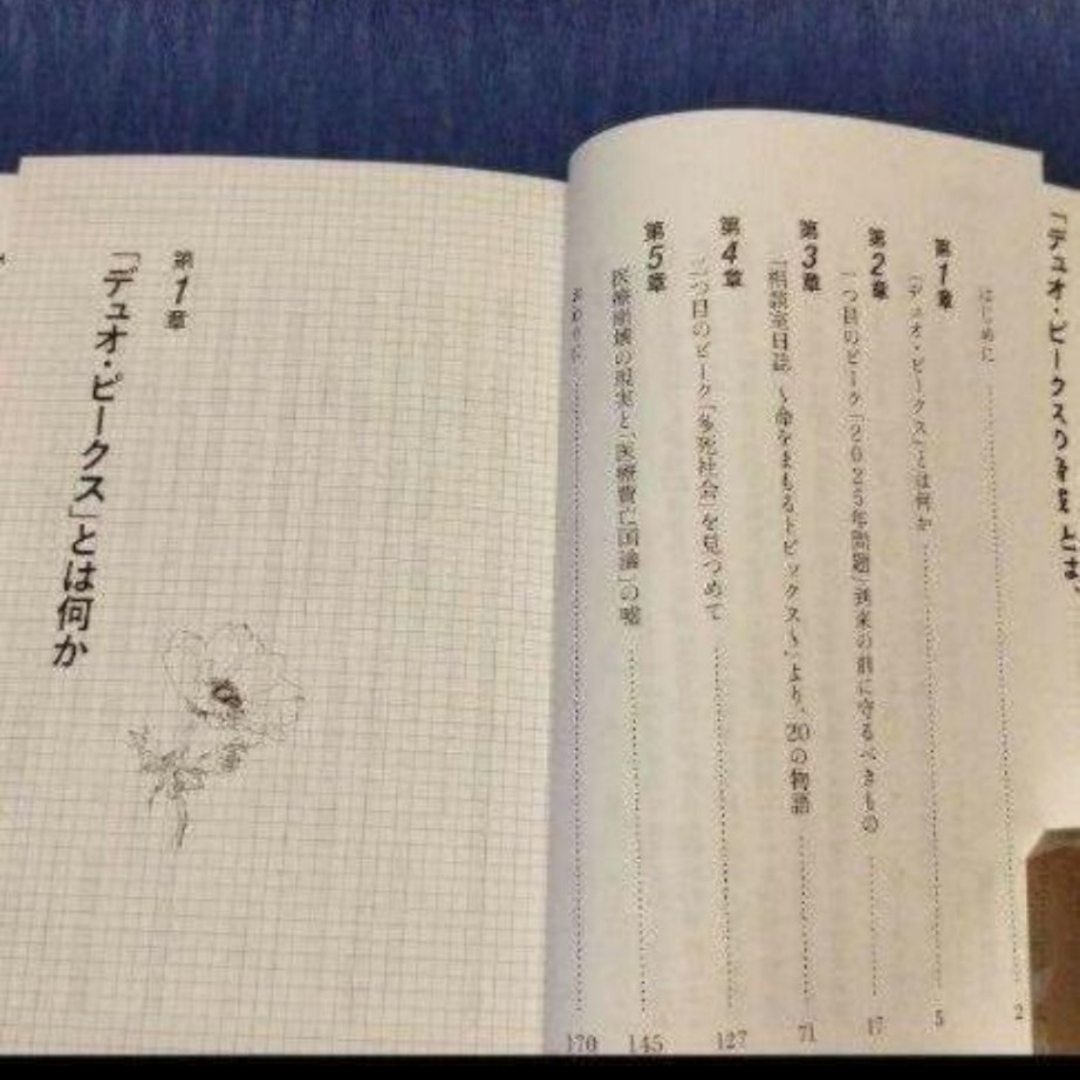 「デュオ・ピークスの
はじめに 2
第1章
「デュオ・ピークス」とは何か 5
第2章
一つ目のピーク「2025年問題」到来の前に守るべきもの 17
第3章
「相談室日誌 〜命をまもるトピックス〜」より、20の物語 71
第4章
二つ目のピーク「多死社会」を見つめて 127
第5章
医療崩壊の現実と「医療費亡国論」の嘘 145
おわりに 170
第1章
「デュオ・ピークス」とは何か